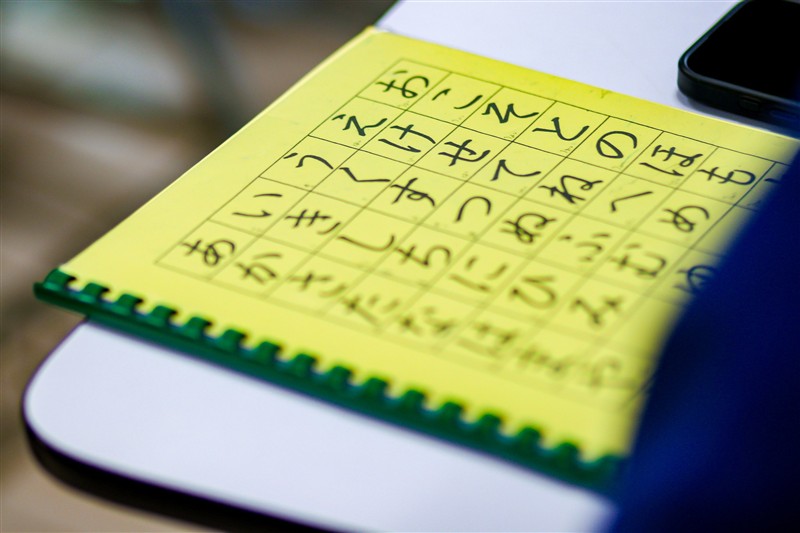 おこそとのほも
えけせてねへめ
うくすつぬふむゆ
いきしちにひみ
あかさたなはまや